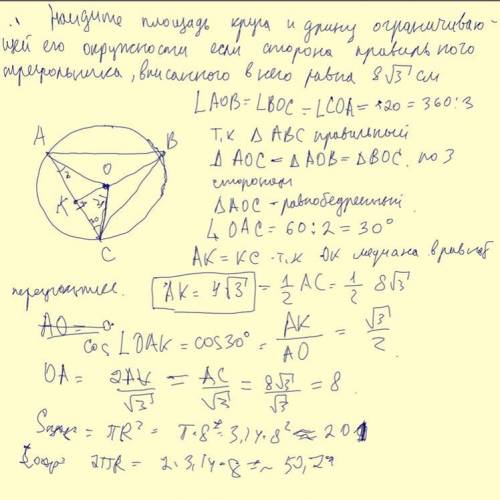 Найдите площадь круга и длину ограничиваю-
щей его окружности если сторона правильного
треугольника, вписанного в него равна 8√3 см
∠AOB = ∠BOC = ∠COA = 120 = 360:3
т.к ΔABC правильный
ΔAOC = ΔAOB = ΔBOC. по 3
сторонам
ΔAOC - равнобедренный.
∠OAC = 60:2 = 30°
AK = KC т.к OK медиана в равноб
треугольнике.
AK = 4√3 = 1/2 AC = 1/2 8√3
AO =
cos ∠OAK = cos30° = AK/AO = √3/2
OA = 2AK/√3 = AC/√3 = 8√3/√3 = 8.
= πR² = π·8² = 3,14·8² ≈ 201
2πR = 2·3,14·8 ≈
A
B
O
K
C